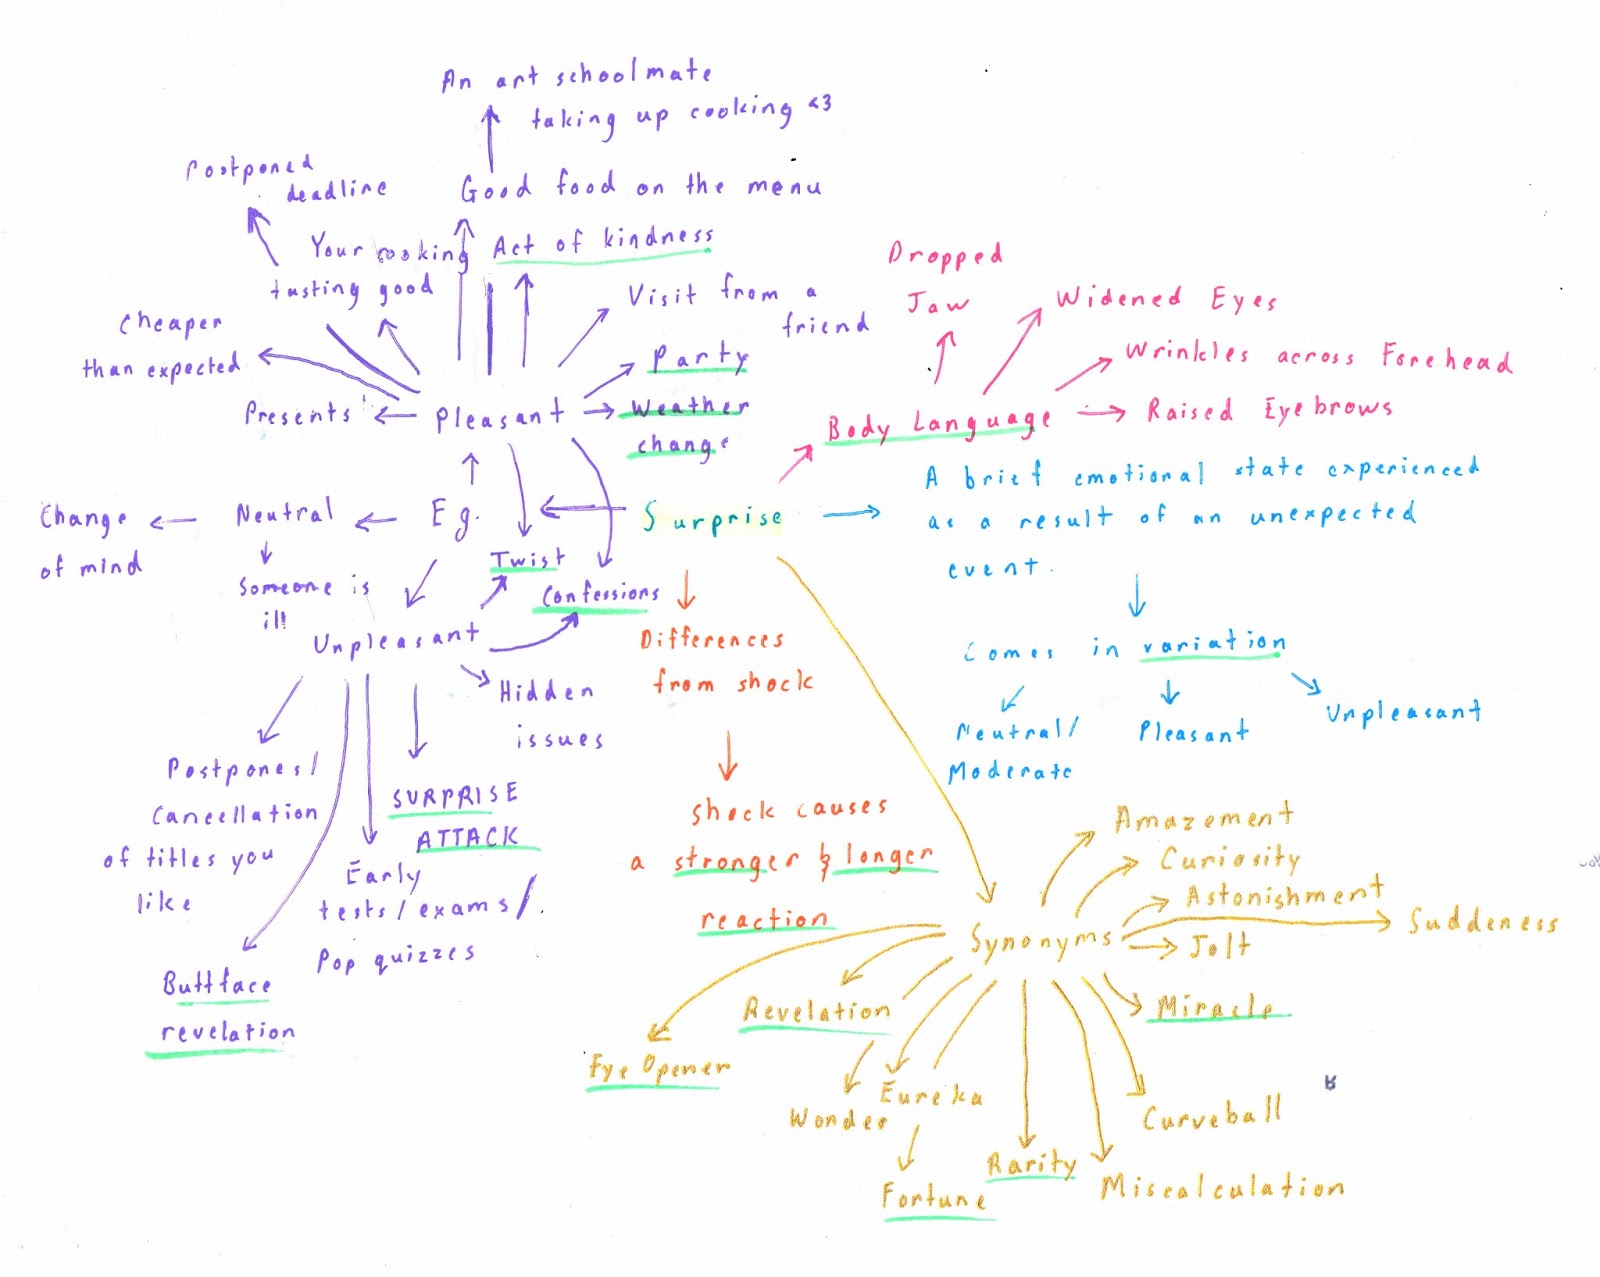 An art schoolmate
taking up cooking <3
Postponed
deadline
Good food on the menu
Your cooking
tasting good
Act of kindness
Visit from a
friend
Cheaper
than expected
Party
Presents
Pleasant
Weather
change
Dropped
Jaw
Widened Eyes
Wrinkles across Forehead
Body Language
Raised Eyebrows
Change
of mind
Neutral
E.g.
Surprise
A brief emotional state experienced
as a result of an unexpected
event.
Someone is
ill
Twist
Confessions
Unpleasant
Hidden
issues
Differences
from shock
Comes in variation
Neutral/
Moderate
Pleasant
Unpleasant
Postpones/
Cancellation
of titles you
like
SURPRISE
ATTACK
Early
tests/exams/
Pop quizzes
Buttface
revelation
Shock causes
a stronger & longer
reaction
Synonyms
Amazement
Curiosity
Astonishment
Suddeness
Jolt
Miracle
Revelation
Eye Opener
Wonder
Eureka
Fortune
Rarity
Curveball
Miscalculation